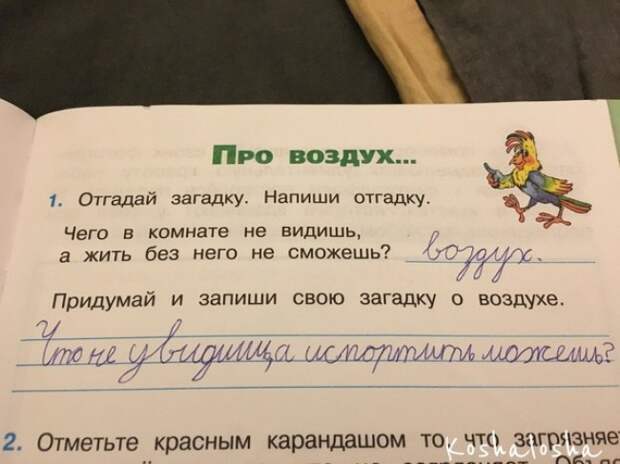 Про воздух...
1. Отгадай загадку. Напиши отгадку.
Чего в комнате не видишь,
а жить без него не сможешь? воздух.
Придумай и запиши свою загадку о воздухе.
Что не увидиш, а испортить можешь?
2. Отметьте красным карандашом то, что загрязняе
koshatosha